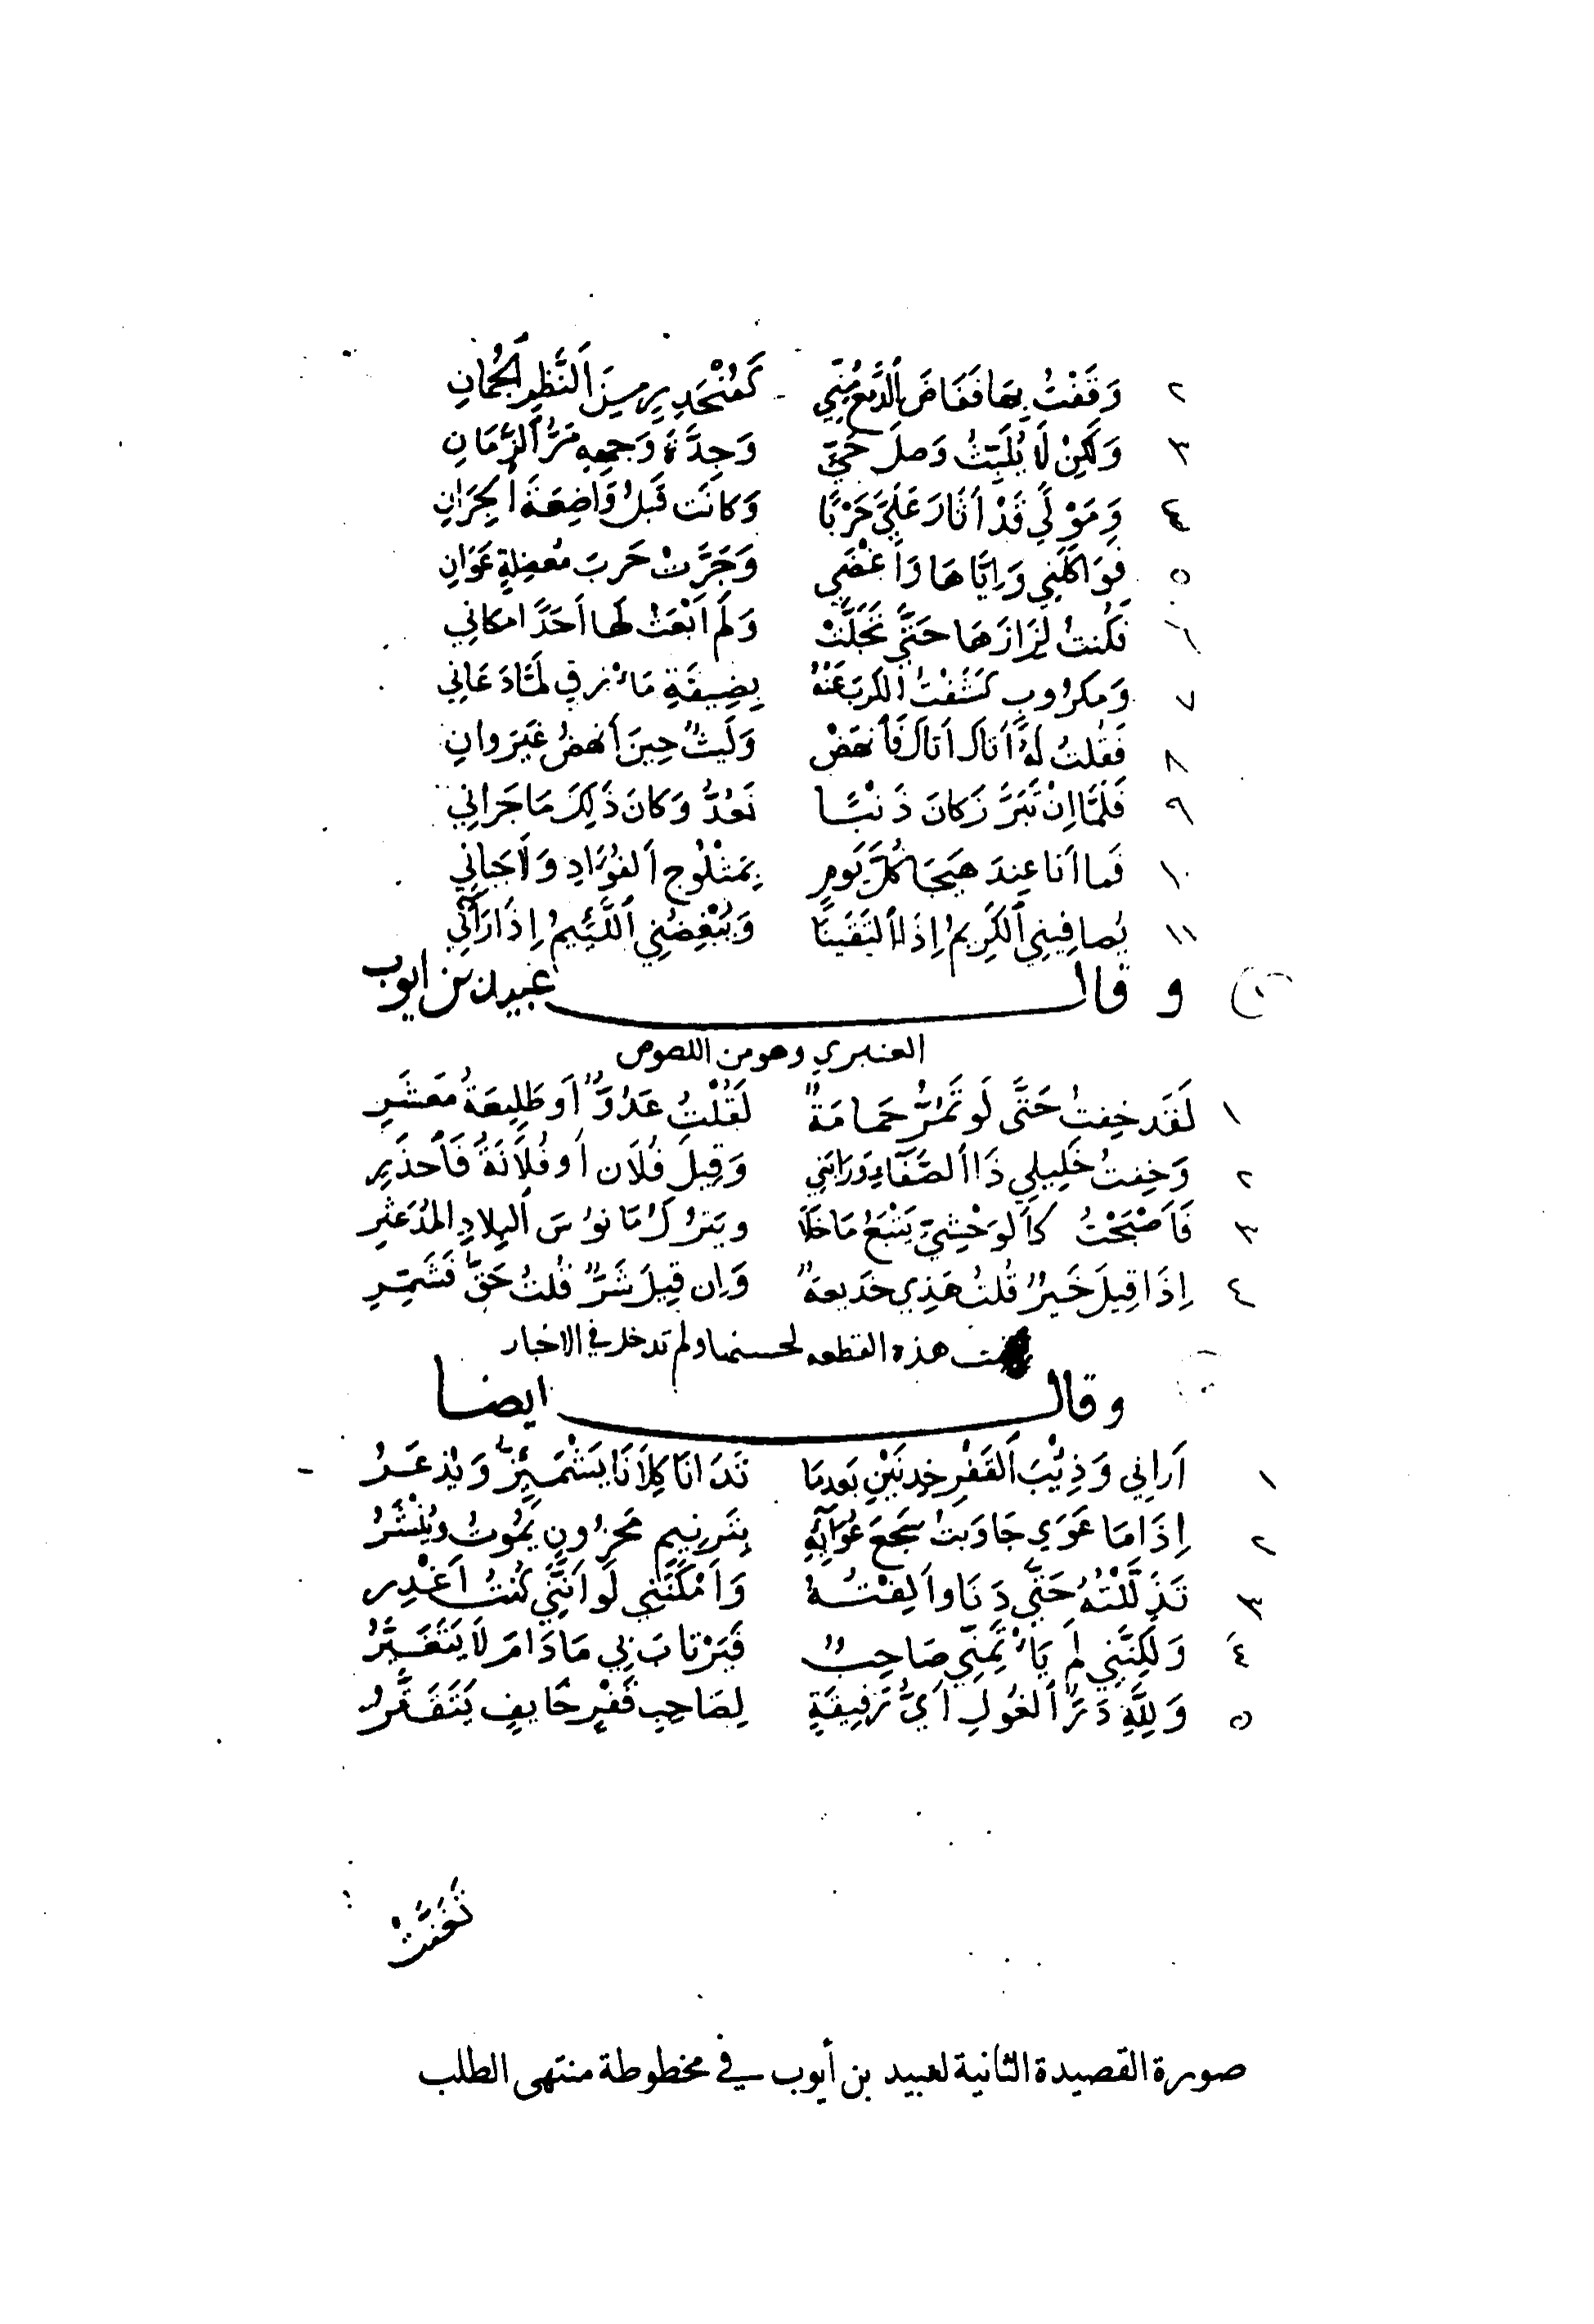 ٢ وَقَفْتُ بِهَا فَفَاضَ ٱلدَّمعُ مِنِّي كَمُنْحَدِرٍ مِنَ ٱلنَّظمِ ٱلجُمَانِ
٣ وَلَكِنْ لَا يُلَبِّثُ وَصلَ حَيٍّ وَجِدَّةَ وَجهِهِ مَرُّ ٱلزَّمَانِ
٤ وَمَوْلًى قَدْ اَثَارَ عَلَيَّ حَرْبًا وَكانَت قَبلُ وَاضِعَةَ ٱلجِرَانِ
٥ فَوَاكَلَنِي وَاِيَّاهَا وَاَغْضَى وَجَرَّتْ حَربَ مُعضِلةٍ عَوَانِ
٦ فَكُنتُ لِزَازَهَا حَتَّى تَجَلَّتْ وَلَم اَبْعَثْ لَهَا اَحَدًا مكاني
٧ وَمكرُوبٍ كَشَفْتُ الكَربَ عَنْهُ بِضِيقَةِ مَأْزِقٍ لَمَّا دَعَانِي
٨ فَقُلتُ لَهُ اَتَاكَ اَتَاكَ فَٱنهَضْ وَلَيثٌ حِينَ اَنهَضُ غَيرَ وانِ
٩ فَلَمَّا اِنْ تَبَرَّزَ كانَ ذَنْبًا نَعُدُّ وَكانَ ذَلِكَ مَا جَزانِي
١٠ فَما اَنا عِندَ هَيجَا كُلَّ يَومٍ بِمَثْلُوجِ ٱلفُؤَادِ وَلَا جَبانِ
١١ يُصافِينِي ٱلكَرِيمُ اِذَا ٱلتَقَينَا وَيُبْغِضُنِي ٱللَّئِيمُ اِذَا رَآنِي
وقال عبيد بن ايوب
العنبري وهو من اللصوص
١ لَقَد خِفتُ حَتَّى لَو تَمُرُّ حَمَامَةٌ لَقُلْتُ عَدُوٌّ اَو طَلِيعَةُ مَعشَرِ
٢ وَخِفتُ خَلِيلِي ذَا ٱلصَّفَاءِ وَرَابَنِي وَقِيلَ فُلَان اَو فُلَانَةُ فَٱحذَرِ
٣ فَاَصْبَحْتُ كَٱلوَحْشِيِّ يَتْبَعُ مَاخَلَا ويَترُكُ مَانوُسَ ٱلبِلادِ المُدَعثَرِ
٤ اِذَا قِيلَ خَيرٌ قُلتُ هَذِي خَدِيعَةٌ وَاِن قِيلَ شَرٌّ قُلتُ حَقٌّ فَشَمِّرِ
هذه القطعه لحسنها ولم تدخل في الاخبار
وقال ايضا
١ اَرانِي وَذِئْبَ ٱلقَفْرِ خِدنَيْنِ بَعدمَا تَدَانَا كِلَانَا يَشْمَئِزُّ وَيُذعَرُ
٢ اِذَا مَا عَوَى جَاوَبتُ سَجعَ عُوَآئِهِ بِتَرنِيمِ مَحزُونٍ يَمُوتُ ويُنْشَرُ
٣ تَذَلَّلْتُهُ حَتَّى دَنَا واَلِفْتُهُ وَاَمْكَنَنِي لَو اَنَّنِي كُنتُ اَغْدِر
٤ وَلَكِنَّنِي لَم يَأْتَمِنِّي صَاحِبٌ فَيَرْتابَ بِي مَادَامَ لَا يَتَغَيَّرُ
٥ وَلِلَّهِ دَرُّ ٱلغُولِ اَيُّ رَفِيقَةٍ لِصَاحِبِ قَفْرٍ خَايفٍ يَتَقَفَّرُ
صورة القصيدة الثانية لعبيد بن أيوب في مخطوطة منتهى الطلب